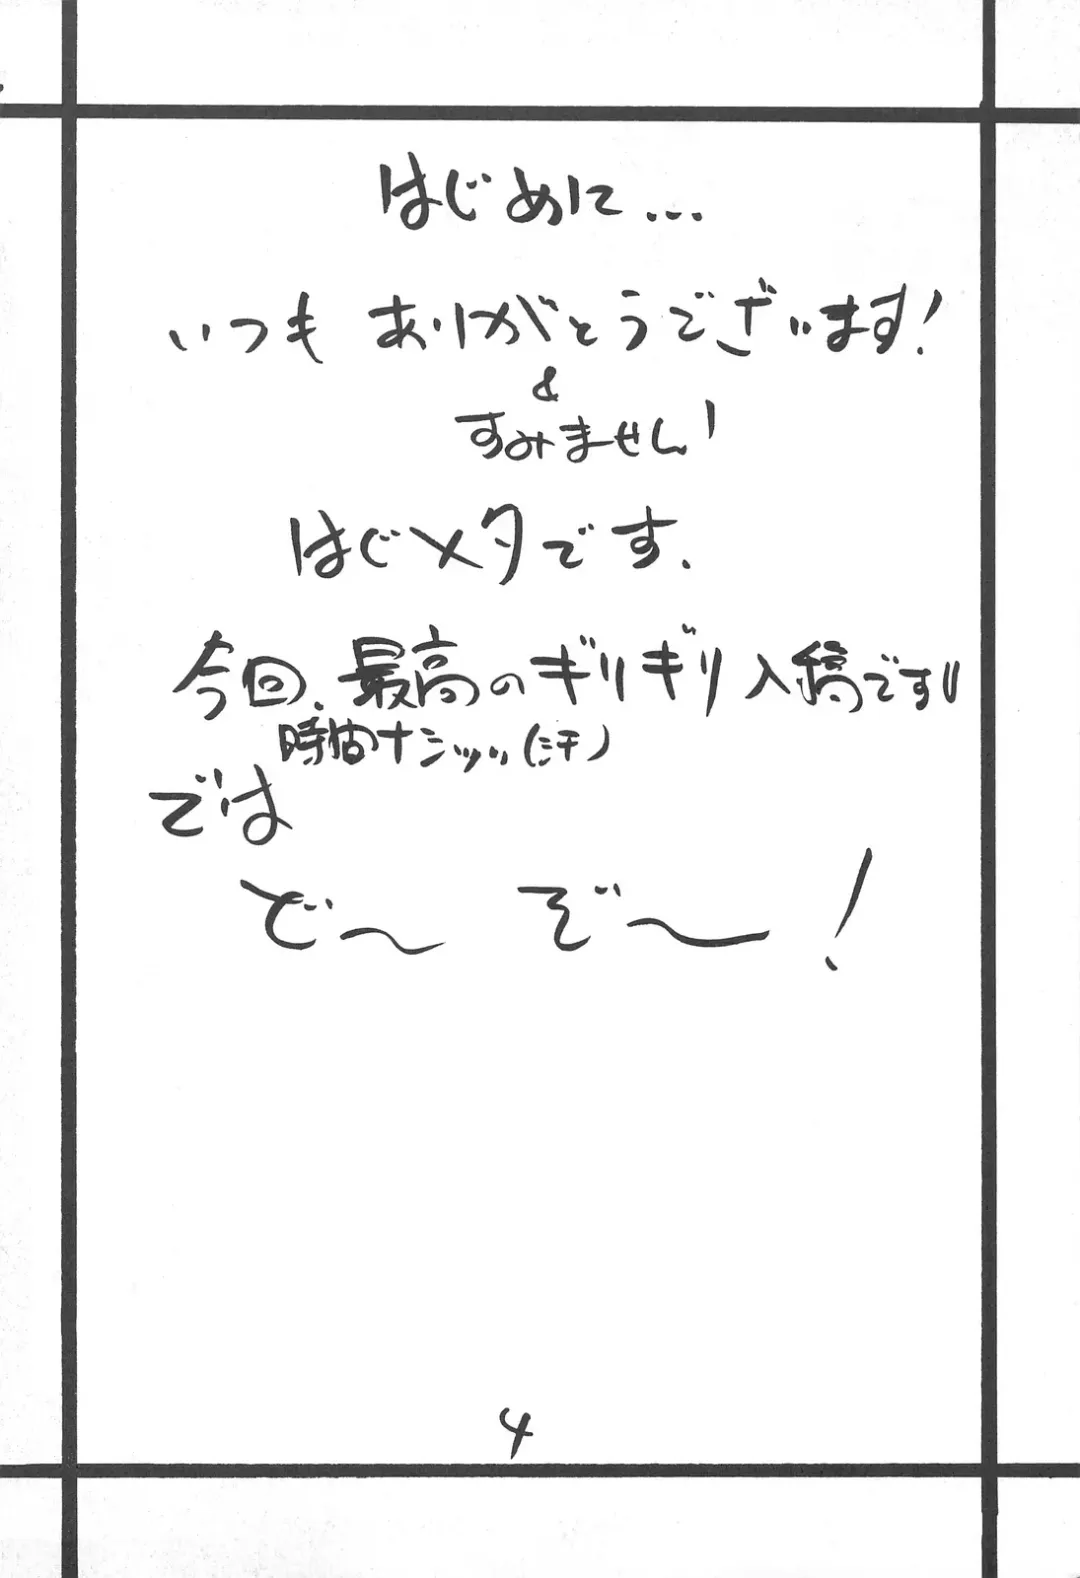 はじめに...
いつも ありがとうでございます!
&
すみません!
はじメタです.
今回.最高のギリギリ入稿です!!
時間ナシッッ(汗)
では
ど〜 ぞ〜!
4